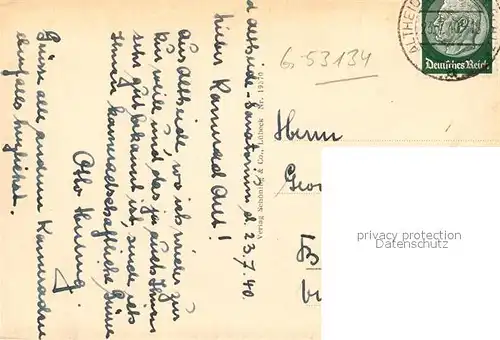 d. Altheide-Sanatorium, d. 23.7.40.
Lieber Kamerad Ant!
Aus Altheide, wo ich wieder zur
Kur weile und das ja auch Ihnen
sehr gut bekannt ist, sende ich
Ihnen kameradschaftliche Grüsse
Otto
Grüsse alle anderen Kameraden
ebenfalls herzlichst.
Verlag Schöning & Co., Lübeck Nr. 19
G-53134
ALTHEIDE
Deutsches Reich
Herrn
Geor
B
privacy protection
Datenschutz